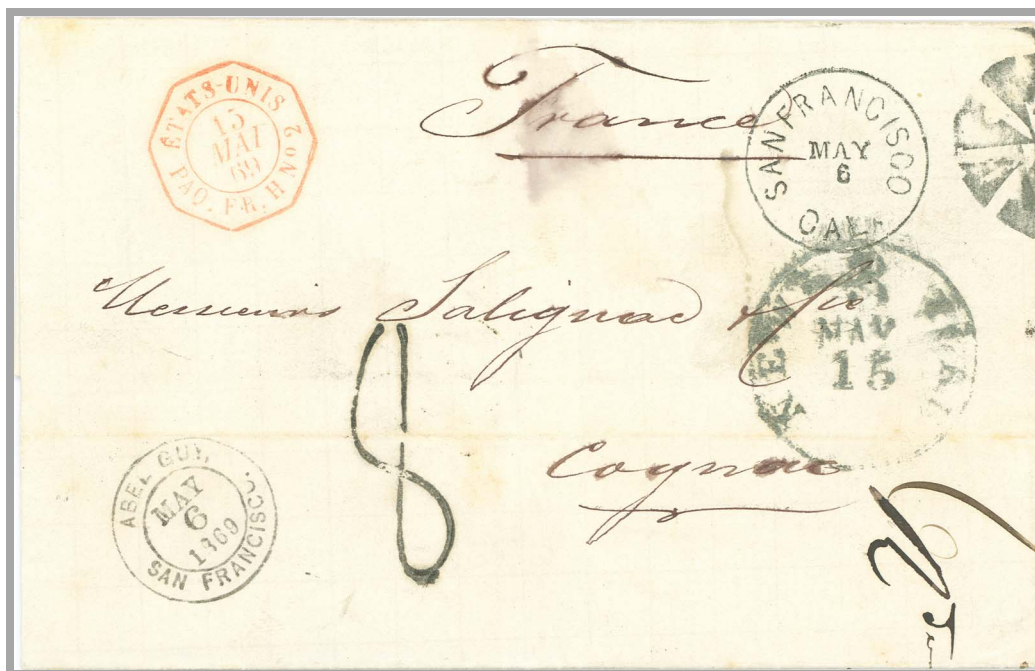 ÉTATS-UNIS
15
MAI
69
PAQ. FR. H No 2
France
SAN FRANCISCO
MAY
6
CAL.
Messieurs Salignac & Cie
MAY
15
8
Cognac
ABEL GUY,
MAY
6
1869
SAN FRANCISCO.